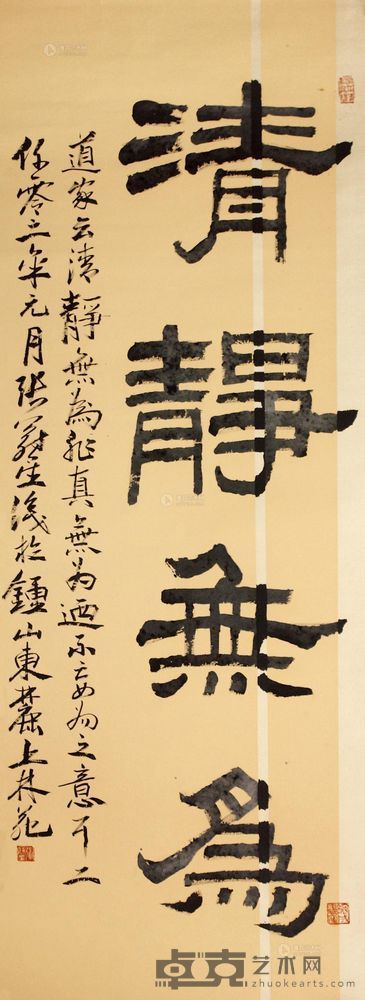 清靜無為
道家云清靜無為非真無為迺不妄為之意耳二
仟零三年元月張
生識於鍾山東麓上林苑
卓克艺术网
www.zhuokearts.com